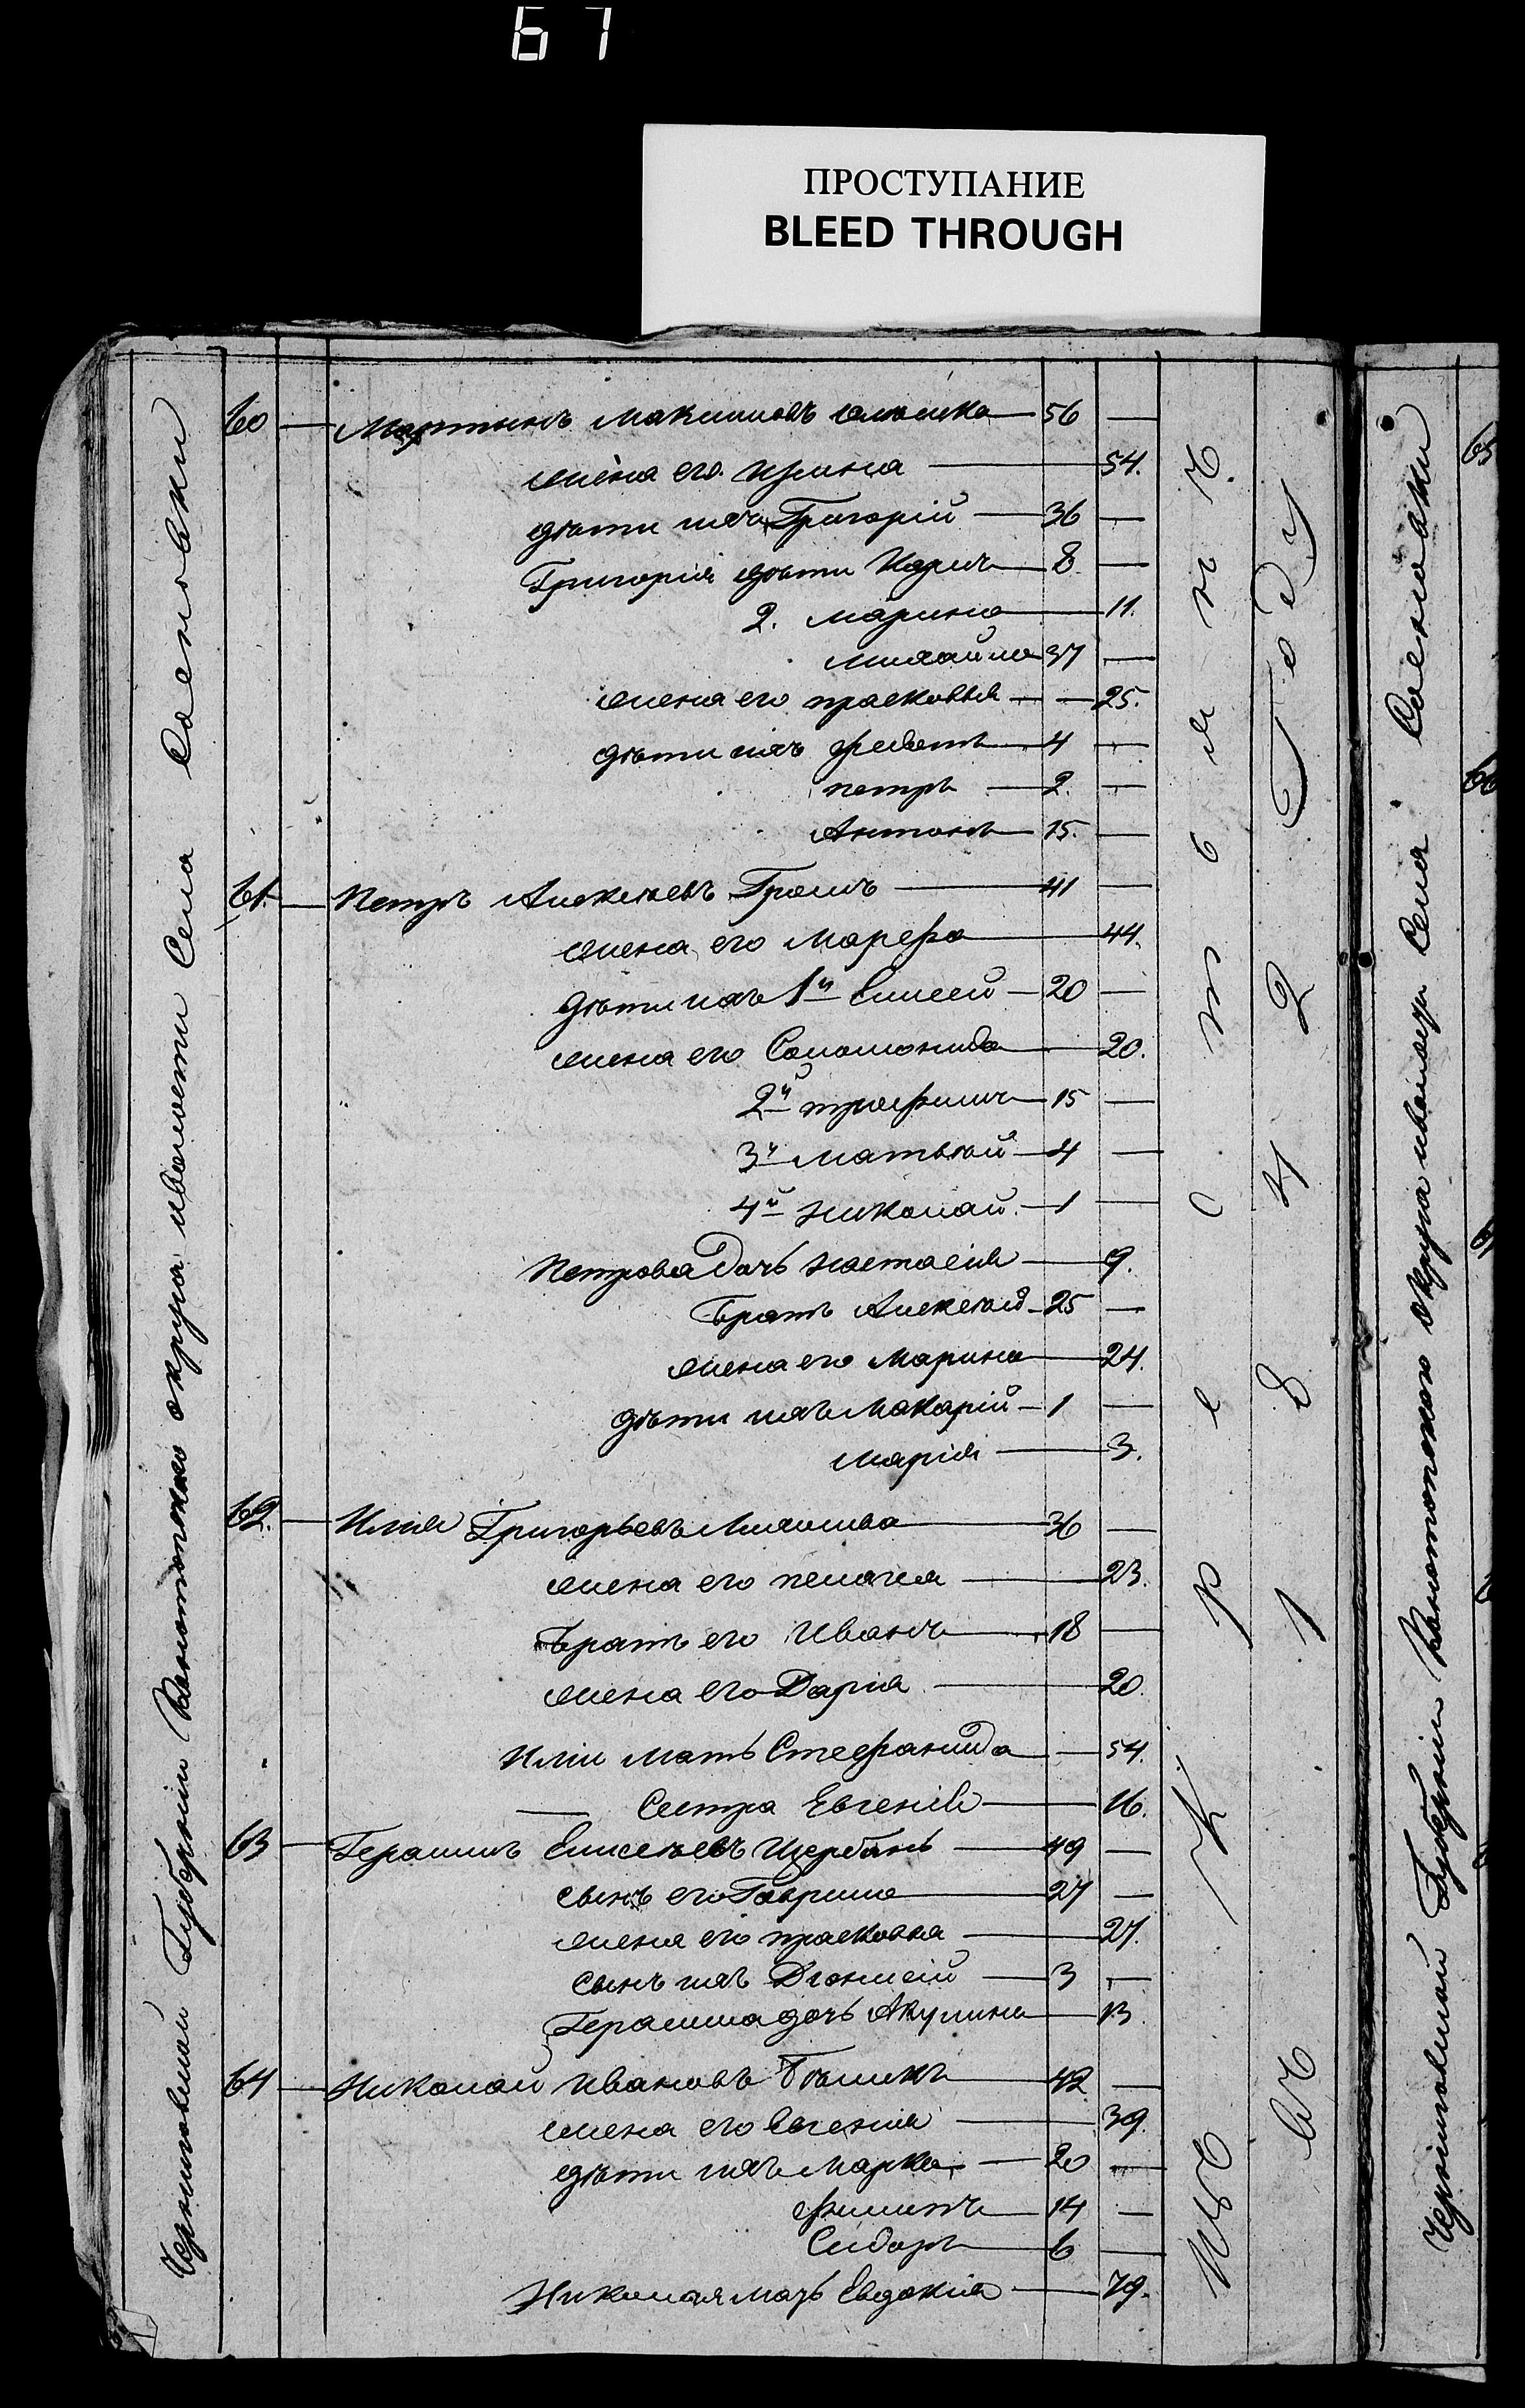 67
ПРОСТУПАНИЕ
BLEED THROUGH
Черниговской Губерніи Конотопскаго округа и волости Села
60 — Мартынъ Максимовъ — 56 —
жена его Ирина — 54.
дѣти ихъ Григорій — 36 —
Григорія дѣти Карпъ — 8 —
2. Марина — 11.
Михайло 37 —
жена его прасковья — 25.
дѣти ихъ федотъ — 4 —
петръ — 2. —
Антонъ — 15. —
61. — Петръ Алексѣевъ — 41 —
жена его Марфа — 44.
дѣти ихъ 1й Елисей — 20 —
жена его Соломонида — 20.
2й трофимъ — 15 —
3й Матвѣй — 4 —
4й николай — 1 —
Петрова дочь настасія — 9.
Братъ Алексѣй — 25 —
жена его Марина — 24.
дѣти ихъ Макарій — 1 —
Марія — 3.
62. — Илья Григорьевъ — 36 —
жена его пелагея — 23.
Братъ его Иванъ — 18 —
жена его Дарія — 20.
Иліи мать Стефанида — 54.
— Сестра Евгенія — 16.
63 — Герасимъ Елисѣевъ Щербань — 49 —
сынъ его Гаврило — 27 —
жена его прасковья — 27.
сынъ ихъ Діонисій — 3 —
Герасима дочь Акулина — 13
64 — Николай Ивановъ — 42 —
жена его Евгенія — 39.
дѣти ихъ Марко — 20 —
филипъ — 14 —
Сидоръ — 6 —
Николая мать Евдокія — 79.
Изъ Крестьянъ
въ 1842 Году
Черниговской Губерніи Конотопскаго округа и волости Села
65
66